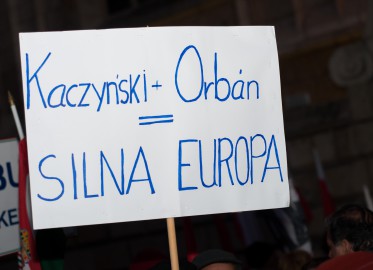 Kaczyński + Orbán
=
SILNA EUROPA
BU
KE